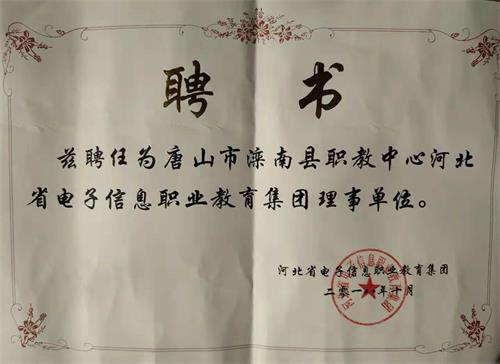 聘书
兹聘任为唐山市滦南县职教中心河北
省电子信息职业教育集团理事单位。
河北省电子信息职业教育集团
二零一 年十月